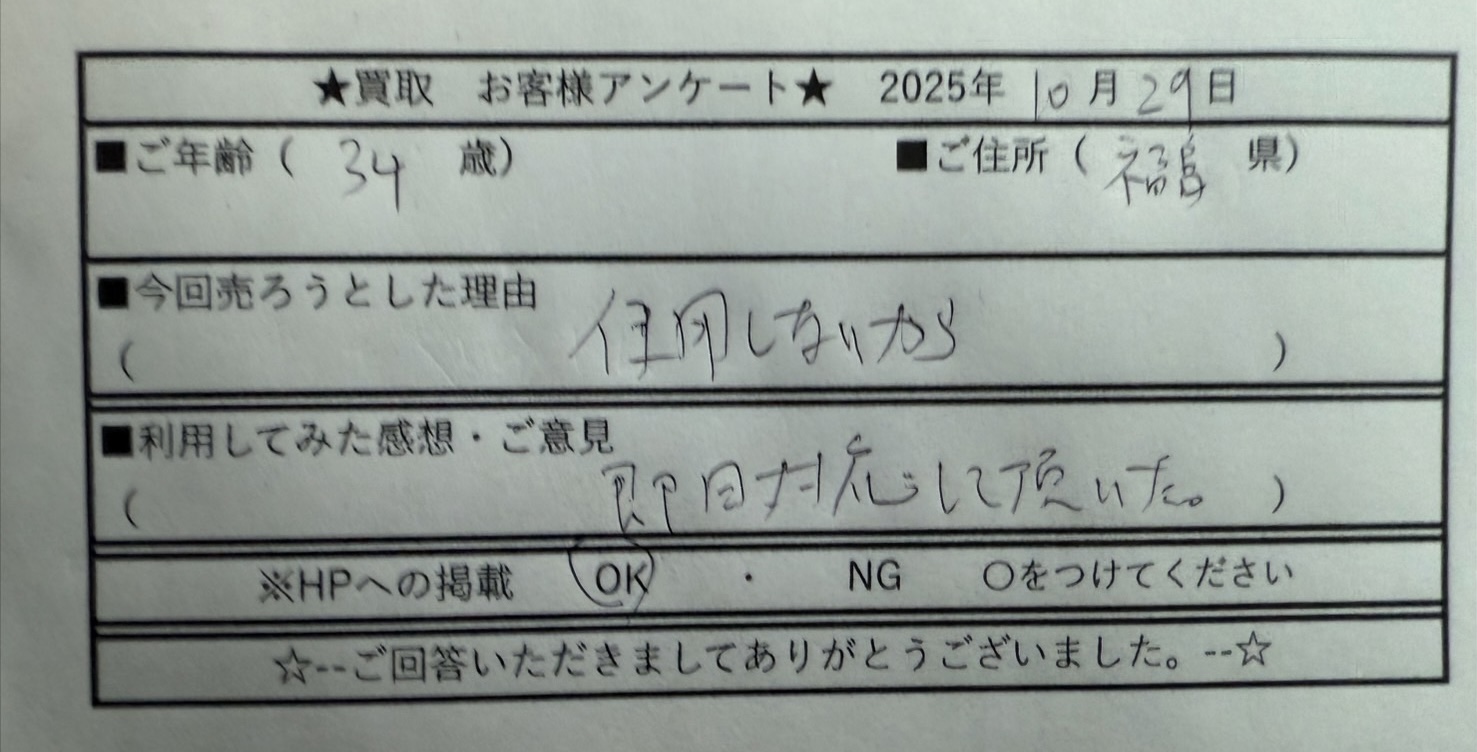 ★買取 お客様アンケート★ 2025年 10月29日
■ご年齢( 34 歳) ■ご住所( 福島 県)
■今回売ろうとした理由
( 使用しないから )
■利用してみた感想・ご意見
( 即日対応して頂いた。 )
※HPへの掲載 OK ・ NG 〇をつけてください
☆--ご回答いただきましてありがとうございました。--☆